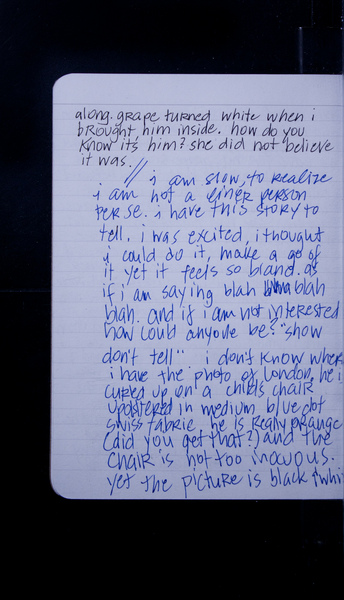 along. grape turned white when i
brought him inside. how do you
know it's him? she did not believe
it was. //
i am slow, to realize
i am not a liner person
per se. i have this story to
tell. i was excited, i thought
i could do it, make a go of
it yet it feels so bland. as
if i am saying blah blah
blah. and if i am not interested
how could anyone be? "show
don't tell". i don't know where
i have the photo of london, he is
cured up on a childs chair
upolstered in medium blue dot
swiss fabric. he is really orange
(did you get that?) and the
chair is not too inocuous.
yet the picture is black & whi